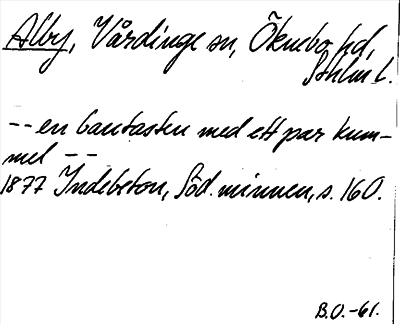 Alby, Vårdinge sn, Öknebo hd,
Sthlm l.
-- en bautasten med ett par kum-
mel --
1877 Indebetou, Söd. minnen, s. 160.
B.O.-61.